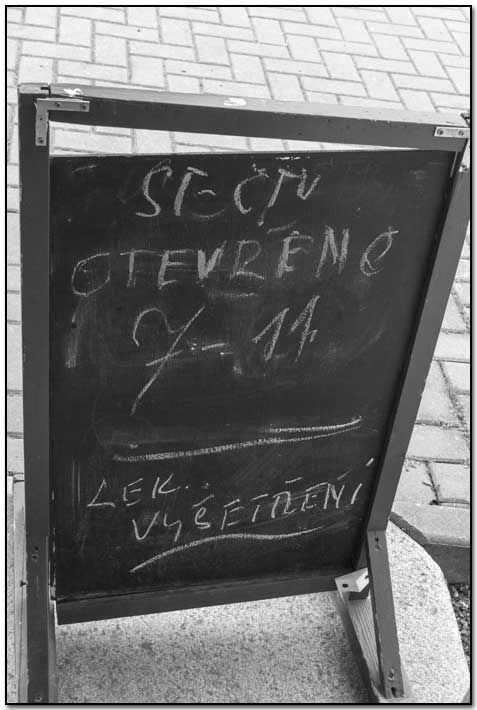 ST-ČTV
OTEVŘENO
7-11
LEK..
VYŠETŘENÍ